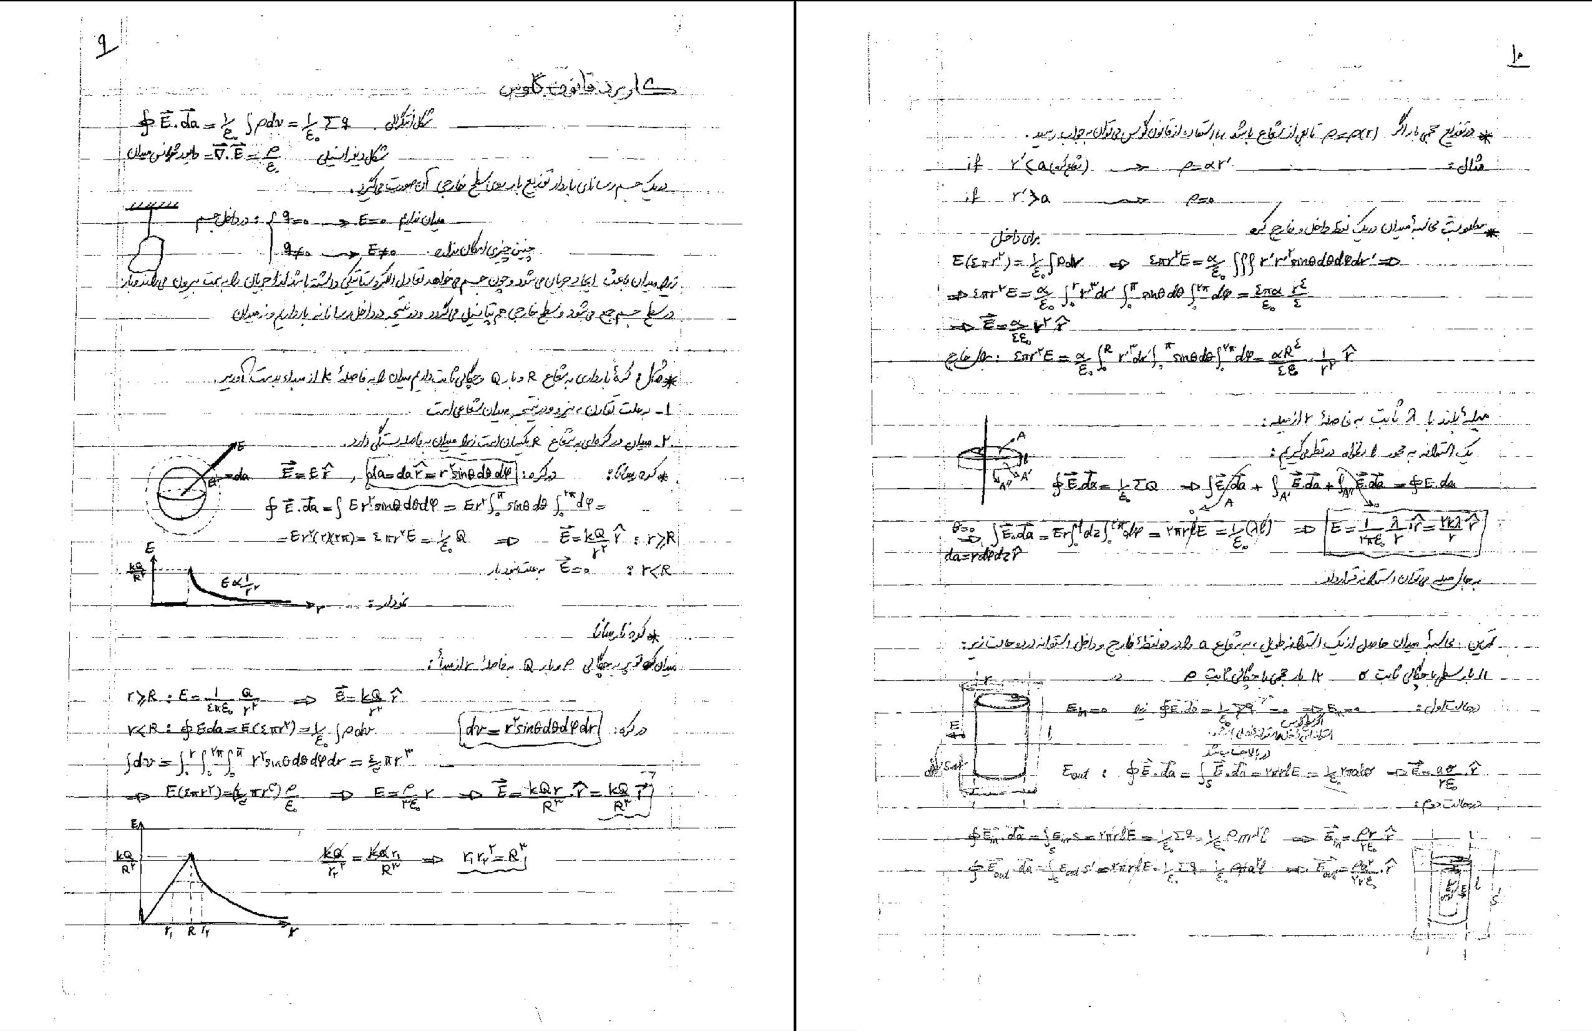 ۹
کاربرد قانون گاوس
∮ E⃗.da⃗ = 1/ε₀ ∫ρdv = 1/ε₀ Σq شکل انتگرالی.
∇⃗.E⃗ = ρ/ε₀ شکل دیفرانسیلی
در یک جسم رسانای باردار توزیع بار روی سطح خارجی آن صورت می‌گیرد.
در داخل جسم: q=0 → E=0 میدان نداریم
q≠0 → E≠0 چنین چیزی امکان ندارد.
زیرا میدان باعث ایجاد جریان می‌شود و چون جسم می‌خواهد تعادل الکتروستاتیکی داشته باشد لذا جریان را به سمت بیرون
در سطح جسم جمع می‌شود و سطح خارجی هم پتانسیل می‌گردد و در نتیجه در داخل رسانا نه بار داریم و نه میدان
*مثال: کرهٔ بارداری به شعاع R و بار Q و چگالی ثابت داریم میدان را به فاصلهٔ r از مبداء بدست آورید.
۱- به علت تقارن، نیرو و در نتیجه میدان شعاعی است
۲- میدان در کره‌ای به شعاع R یکسان است زیرا میدان به فاصله بستگی دارد.
*کره رسانا: در کره: da⃗=da r̂=r²sinθdθdφ , E⃗=E r̂
∮ E⃗.da⃗ = ∫ Er² sinθdθdφ = Er² ∫₀^π sinθdθ ∫₀^۲π dφ =
= Er²(۲)(۲π) = ۴πr²E = 1/ε₀ Q ⇒ E⃗ = kQ/r² r̂ : r≥R
E⃗=0 : r<R
نمودار:
E
kQ/R²
E∝1/r²
r
*کره نارسانا
میدان کره توپر به چگالی ρ و بار Q به فاصلهٔ r از مبدأ:
r≥R : E = 1/۴πε₀ Q/r² ⇒ E⃗ = kQ/r² r̂
r<R : ∮Eda = E(۴πr²) = 1/ε₀ ∫ρdv در کره: dv = r²sinθdθdφdr
∫dv = ∫₀^r ∫₀^۲π ∫₀^π r² sinθdθdφdr = ۴/۳ πr³
⇒ E(۴πr²) = (۴/۳ πr³) ρ/ε₀ ⇒ E = ρ/۳ε₀ r ⇒ E⃗ = kQr/R³ . r̂ = kQ/R³ r⃗
E
kQ/R²
kQ/r₂² = kQr₁/R³ ⇒ r₁r₂² = R³
r₁ R r₂ r
۱۰
*در توزیع حجمی بار اگر ρ=ρ(r) تابعی از شعاع باشد با استفاده از قانون گوس می‌توان به جواب رسید.
مثال: if r'<a → ρ=αr'
if r'>a → ρ=0
*مطلوبست محاسبهٔ میدان در یک نقطه داخل و خارج کره
برای داخل
E(۴πr²) = 1/ε₀ ∫ρdv ⇒ ۴πr²E = α/ε₀ ∫∫∫ r'r'² sinθdθdφdr' ⇒
⇒ ۴πr²E = α/ε₀ ∫₀^r r'³dr' ∫₀^π sinθdθ ∫₀^۲π dφ = ۴πα/ε₀ r⁴/۴
⇒ E⃗ = α/۴ε₀ r² r̂
برای خارج: ۴πr²E = α/ε₀ ∫₀^R r'³dr' ∫₀^π sinθdθ ∫₀^۲π dφ = αR⁴/۴ε₀ . 1/r² r̂
میلهٔ بلند با λ ثابت به فاصلهٔ r از میله:
یک استوانه به محور میله در نظر می‌گیریم:
A A' A''
∮E⃗.da⃗ = 1/ε₀ ΣQ ⇒ ∫_A E⃗.da⃗ + ∫_A' E⃗.da⃗ + ∫_A'' E⃗.da⃗ = ∮E.da
⇒ ∫E.da = Er ∫₀^l dz ∫₀^۲π dφ = ۲πrlE = 1/ε₀ (λl) ⇒ E = 1/۲πε₀ λ/r . r̂ = ۲kλ/r r̂
da=rdφdz r̂
به جای میله می‌توان استوانه قرار داد.
تمرین: محاسبهٔ میدان حاصل از یک استوانه طویل، به شعاع a را در دو نقطهٔ خارج و داخل استوانه در دو حالت زیر:
۱) بار سطحی با چگالی ثابت σ ۲) بار حجمی با چگالی ثابت ρ
در حالت اول: E_in=0 ∮E.da = 1/ε₀ Σq = 0 ⇒ E_in=0
E_out : ∮E⃗.da⃗ = ∫_S E⃗.da⃗ = ۲πrlE = 1/ε₀ ۲πalσ ⇒ E⃗ = aσ/rε₀ . r̂
در حالت دوم:
∮E⃗_in.da⃗ = ∫E_in s = ۲πrlE = 1/ε₀ Σq = 1/ε₀ ρπr²l ⇒ E⃗_in = ρr/۲ε₀ r̂
∮E⃗_out.da⃗ = ∫E_out s' = ۲πrlE = 1/ε₀ Σq = 1/ε₀ ρπa²l ⇒ E⃗_out = ρa²/۲rε₀ . r̂